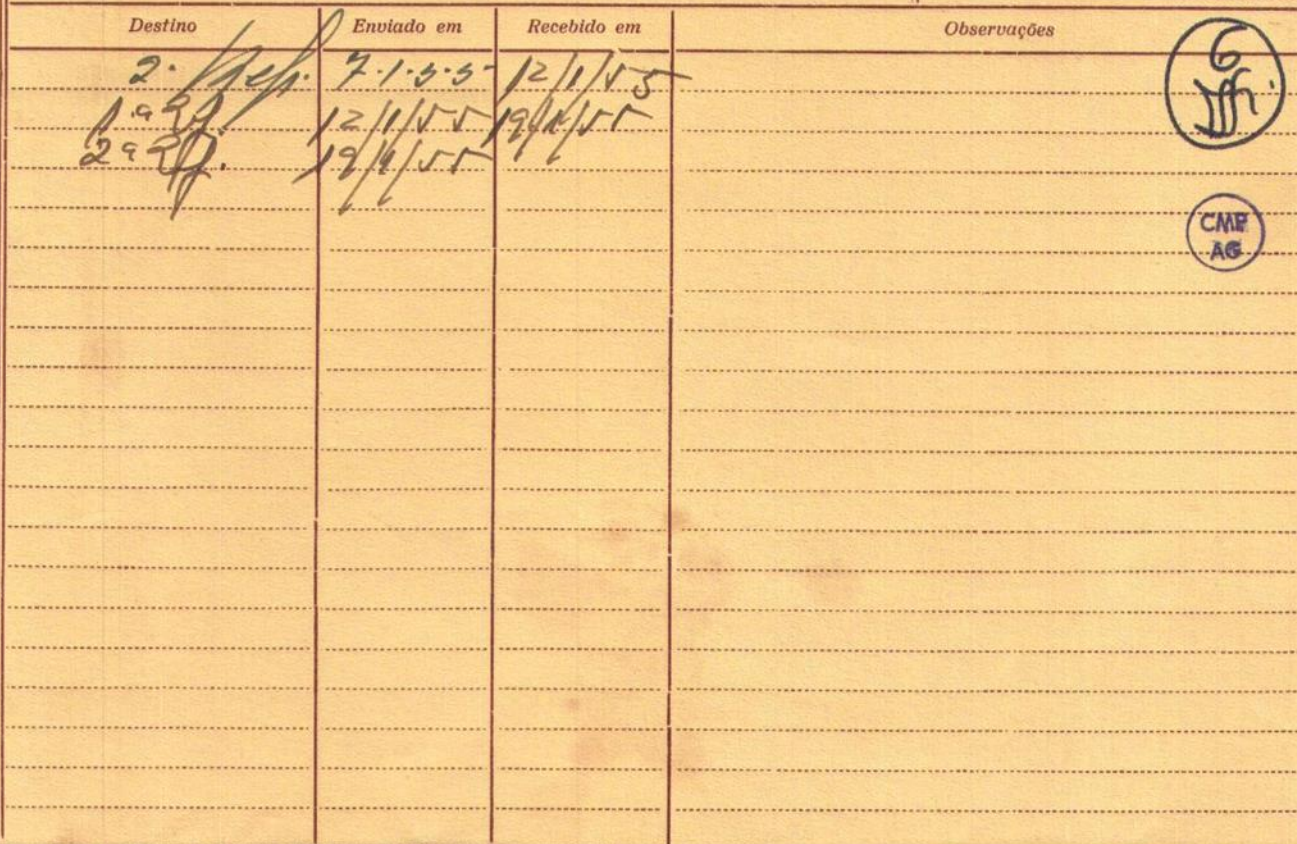 Destino Enviado em Recebido em Observações
2. 7.1.55 12/1/55
1.ª 12/1/55 19/1/55
2ª 19/1/55
6
CMP
AG